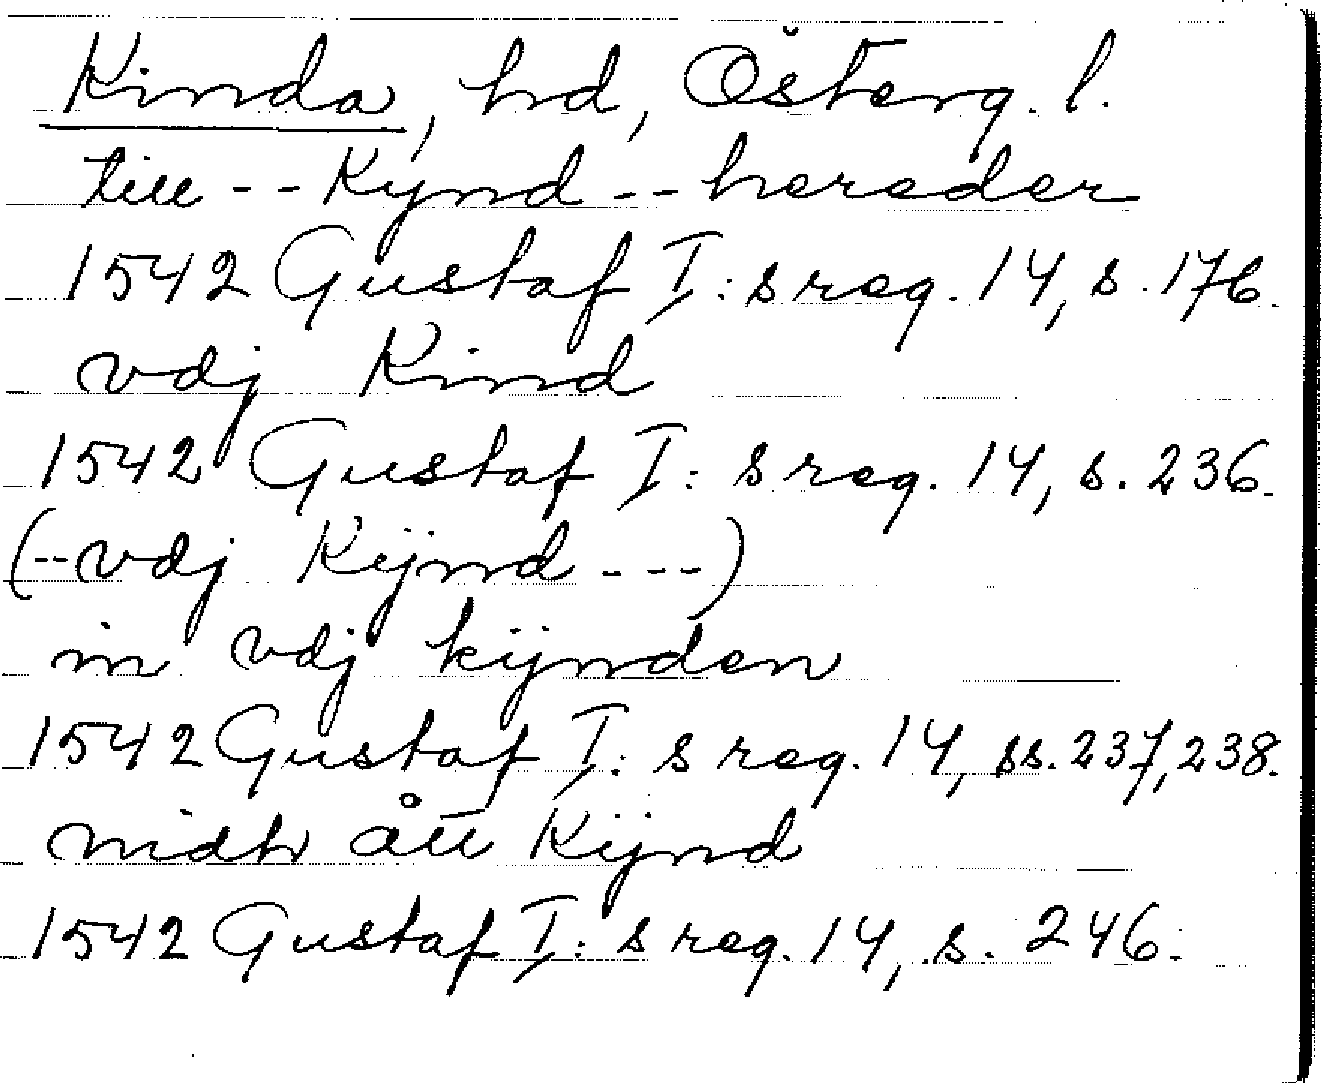 Kinda, hd, Österg. l.
till -- Kÿnd -- hereder
1542 Gustaf I:s reg. 14, s. 176.
vdj Kind
1542 Gustaf I:s reg. 14, s. 236.
(-- vdj Kÿnd ---)
in vdj kÿnden
1542 Gustaf I:s reg. 14, ss. 237, 238.
nidh ått Kÿnd
1542 Gustaf I:s reg. 14, s. 246.